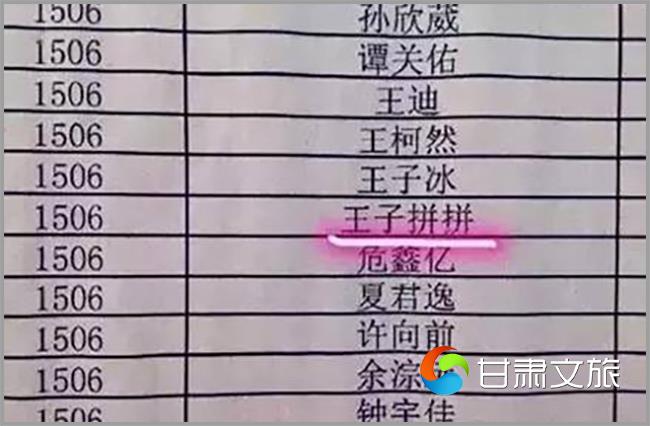 1506 孙欣葳
1506 谭关佑
1506 王迪
1506 王柯然
1506 王子冰
1506 王子拼拼
1506 危鑫亿
1506 夏君逸
1506 许向前
1506 余淙
1506 钟宇佳
甘肃文旅